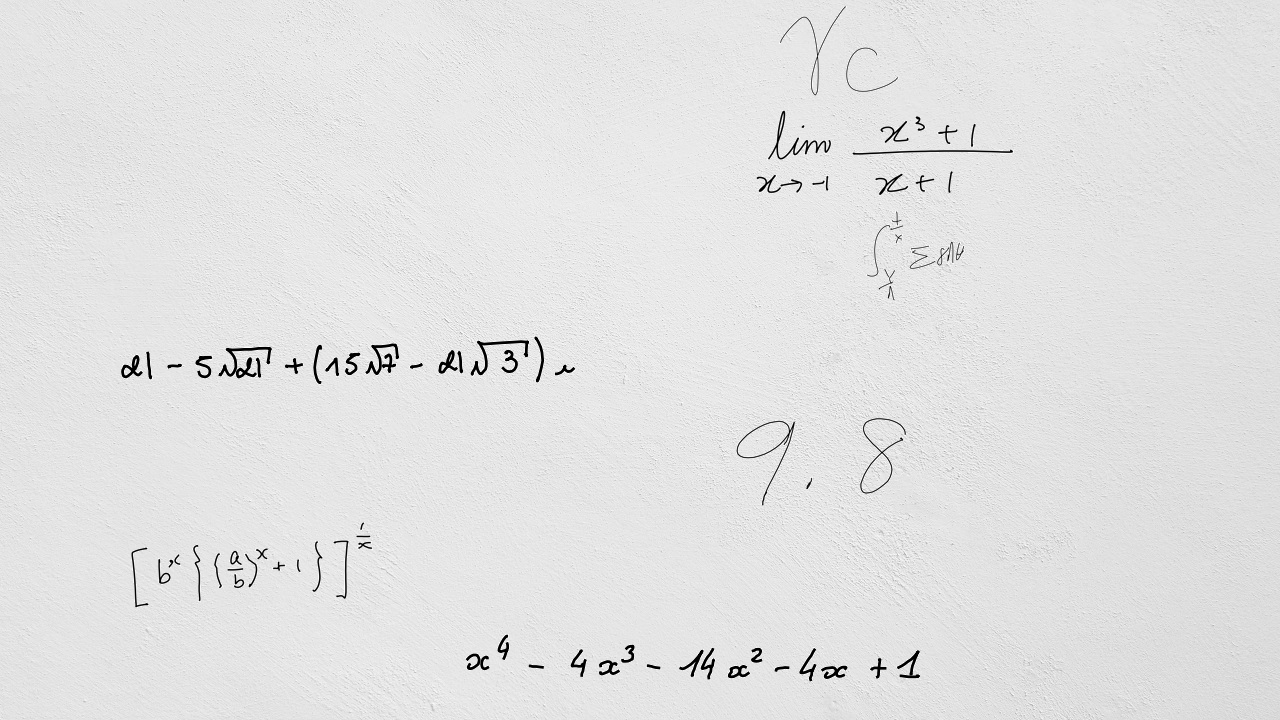 γ c
lim x→-1 (x³ + 1)/(x + 1)
21 - 5√21 + (15√7 - 21√3) i
9.8
[b^x {(a/b)^x + 1}]^(1/x)
x⁴ - 4x³ - 14x² - 4x + 1